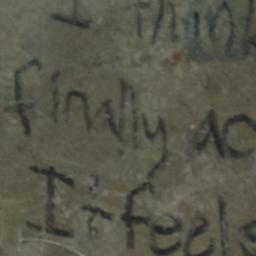 I think
finally ac
It feels